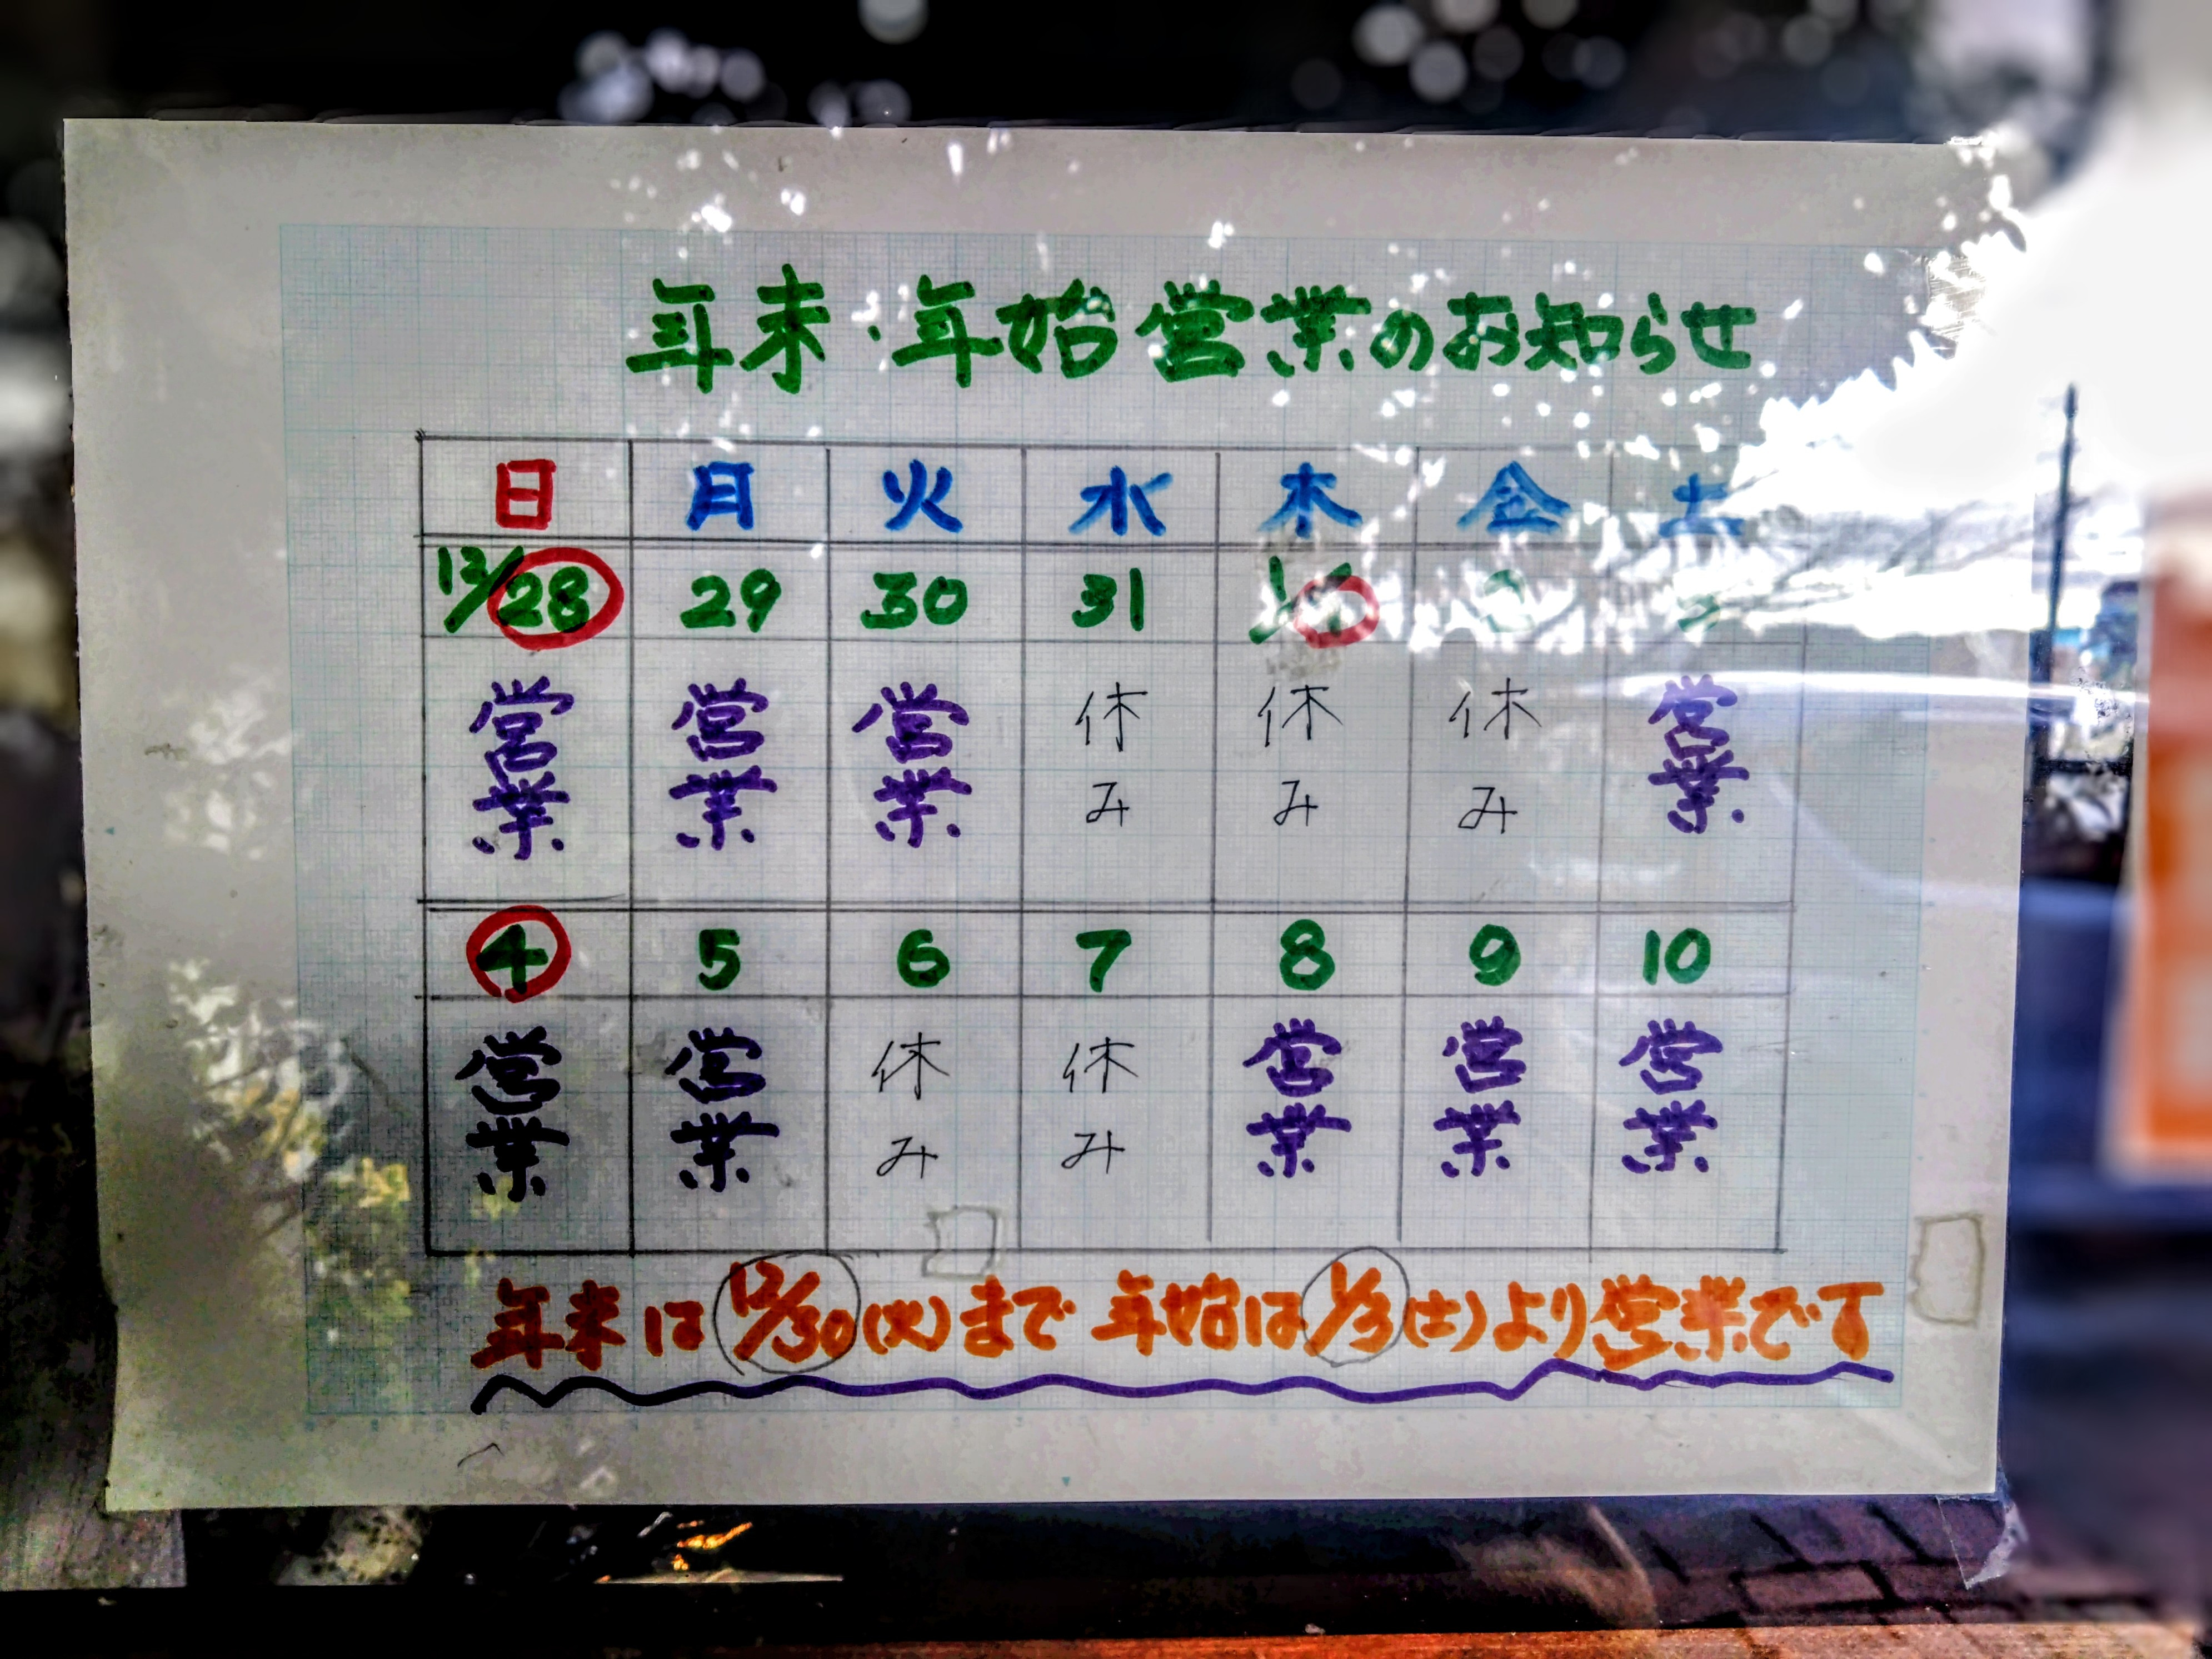 年末・年始営業のお知らせ
日 月 火 水 木 金 土
12/28 29 30 31 1/1 2 3
営業 営業 営業 休み 休み 休み 営業
4 5 6 7 8 9 10
営業 営業 休み 休み 営業 営業 営業
年末は12/30(火)まで 年始は1/3(土)より営業です